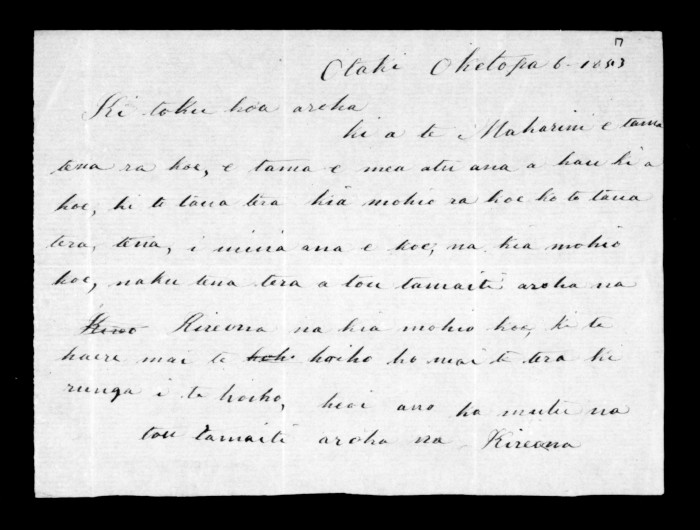 Otaki Oketopa 6 1853
Ki toku hoa aroha
ki a te Makarini e tama
tena ra koe, e tama e mea atu ana a hau ki a
koe, ki te taua tera kia mohio ra koe ko te taua
tera, tena, i minia ana e koe, na kia mohio
koe, naku tena tera a tou tamaiti aroha na
Kireona na kia mohio koe, ki te
haere mai te hoiho ho mai te tera ki
runga i te hoiho, heoi ano ka mutu na
tou tamaiti aroha na Kireona